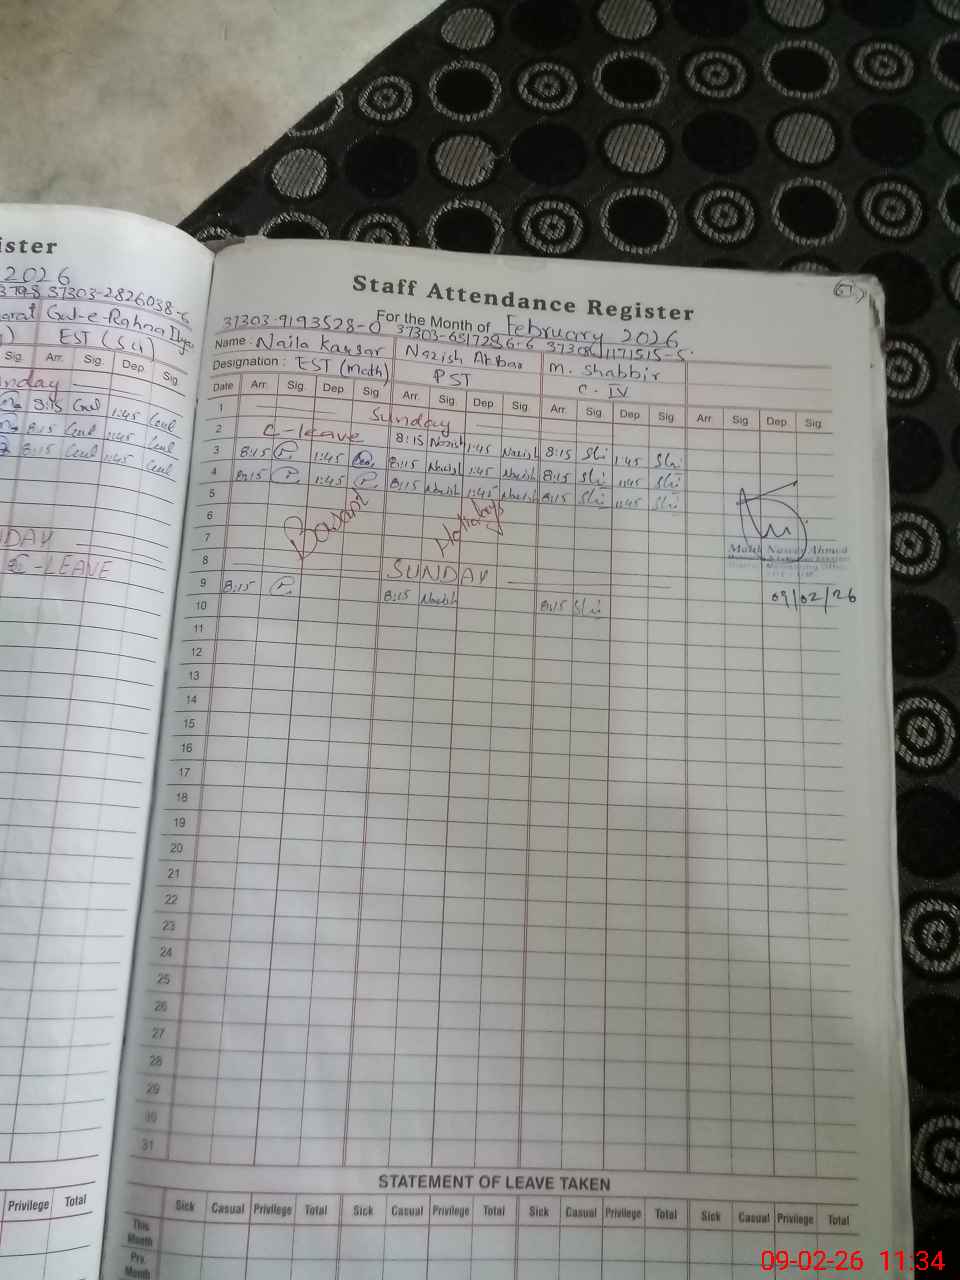 ister
2026
37303-2826038-6
Gul-e-Rahna Ilyas
EST (Sci)
Sig. Arr. Sig. Dep Sig.
nday
8:15 Gul 1:45 Gul
8:15 Gul 1:45 Gul
8:15 Gul 1:45 Gul
NDAY
LEAVE
Privilege Total
Staff Attendance Register
For the Month of February 2026
37303-9193528-0 37303-6517286-6
Name: Naila Kausar Nazish Akbar M. Shabbir
Designation: EST (Math) PST C-IV
Date Arr. Sig Dep Sig. Arr. Sig. Dep Sig. Arr. Sig. Dep Sig. Arr. Sig. Dep Sig.
1 Sunday
2 C-leave 8:15 Nazish 1:45 Nazish 8:15 1:45
3 8:15 1:45 8:15 Nazish 1:45 Nazish 8:15 1:45
4 8:15 1:45 8:15 Nazish 1:45 Nazish 8:15 1:45
5
6 Basant Holiday
7
8 SUNDAY
9 8:15 8:15 Nazish 8:15
Malik Nawaz Ahmed
09/02/26
10
11
12
13
14
15
16
17
18
19
20
21
22
23
24
25
26
27
28
29
30
31
STATEMENT OF LEAVE TAKEN
Sick Casual Privilege Total Sick Casual Privilege Total Sick Casual Privilege Total Sick Casual Privilege Total
This Month
Prv. Month
09-02-26 11:34